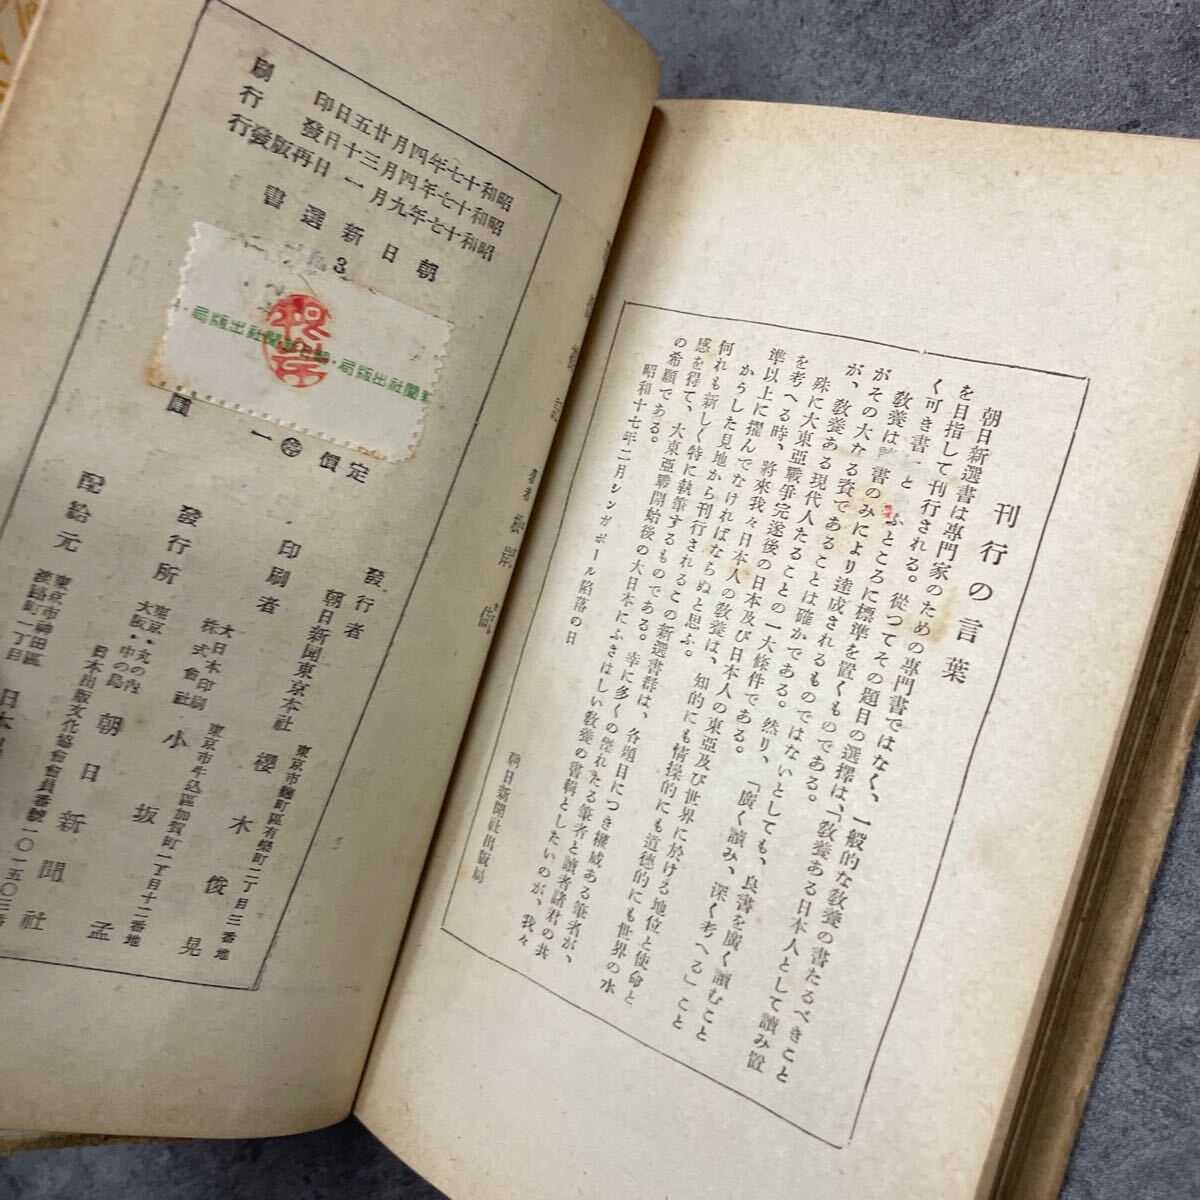 刊行の言葉
朝日新選書は專門家のための專門書ではなく、一般的な敎養の書たるべきこと
を目指して刊行される。從つてその題目の選擇は、「敎養ある日本人として讀み置
く可き書」と ふところに標準を置くものである。
敎養は讀書のみにより達成されるものではないとしても、良書を廣く讀むこと
がその大なる資であることは確かである。然り、「廣く讀み、深く考へる」こと
が、敎養ある現代人たることの一大條件である。
殊に大東亞戰爭完遂後の日本及び日本人の東亞及び世界に於ける地位と使命と
を考へる時、將來我々日本人の敎養は、知的にも情操的にも道德的にも世界の水
準以上に擢んでなければならぬと思ふ。
かうした見地から刊行されるこの新選書群は、各題目につき權威ある筆者が、
何れも新しく特に執筆するものである。幸に多くの傑れたる筆者と讀者諸君の共
感を得て、大東亞戰開始後の大日本にふさはしい敎養の書輯としたいのが、我々
の希願である。
昭和十七年二月シンガポール陷落の日
朝日新聞社出版局
昭和十七年四月廿五日印刷
昭和十七年四月三十日發行
昭和十七年九月一日再版發行
朝日新選書
3
新聞社出版局・朝日新聞社出版局・
定價 停 一圓
發行者
朝日新聞東京本社
東京市麹町區有樂町二丁目三番地
櫻木俊晃
印刷者
大日本印刷株式會社
東京市牛込區加賀町一丁目十二番地
小坂孟
發行所
東京・丸の內
大阪・中の島
朝日新聞社
日本出版文化協會會員番號一〇一五〇三番
配給元
東京市神田區
淡路町二丁目
日本